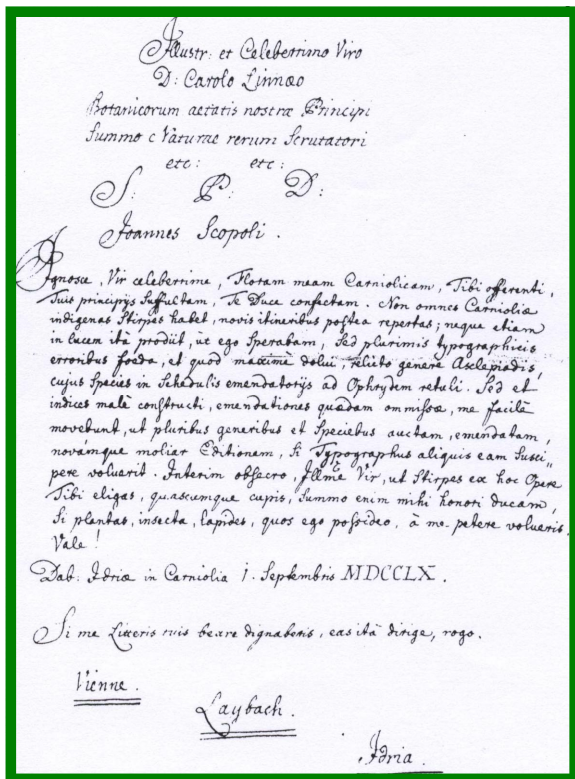 Illustr: et Celeberrimo Viro
D: Carolo Linnæo
Botanicorum aetatis nostræ Principi
Summo c Naturae rerum Scrutatori
etc: etc:
S: P: D:
Joannes Scopoli.
Ignosce, Vir celeberrime, Floram meam Carniolicam, Tibi offerenti,
Tuis principijs suffultam, Te Duce confectam. Non omnes Carnioliæ
indigenas Stirpes habet, novis itineribus postea repertas; neque etiam
in lucem ità prodiit, ut ego sperabam, sed plurimis typographicis
erroribus foeda, et quod maximè dolui, relicto genere Asclepiadis,
cujus species in Schedulis emendatorijs ad Ophrydem retuli. Sed et
indices malè constructi, emendationes quædam ommissæ, me facilè
movebunt, ut pluribus generibus et Speciebus auctam, emendatam,
novámque moliar Editionem, si Typographus aliquis eam Susci-
pere voluerit. Interim obsecro, Illme Vir, ut Stirpes ex hoc Opere
Tibi eligas, quascumque cupis, summo enim mihi honori ducam,
si plantas, insecta, lapides, quos ego possideo, à me petere volueris.
Vale!
Dab: Idriæ in Carniolia 1. Septembris MDCCLX.
Si me Litteris tuis beare dignaberis, eas ità dirige, rogo.
Vienne.
Laybach.
Idria.